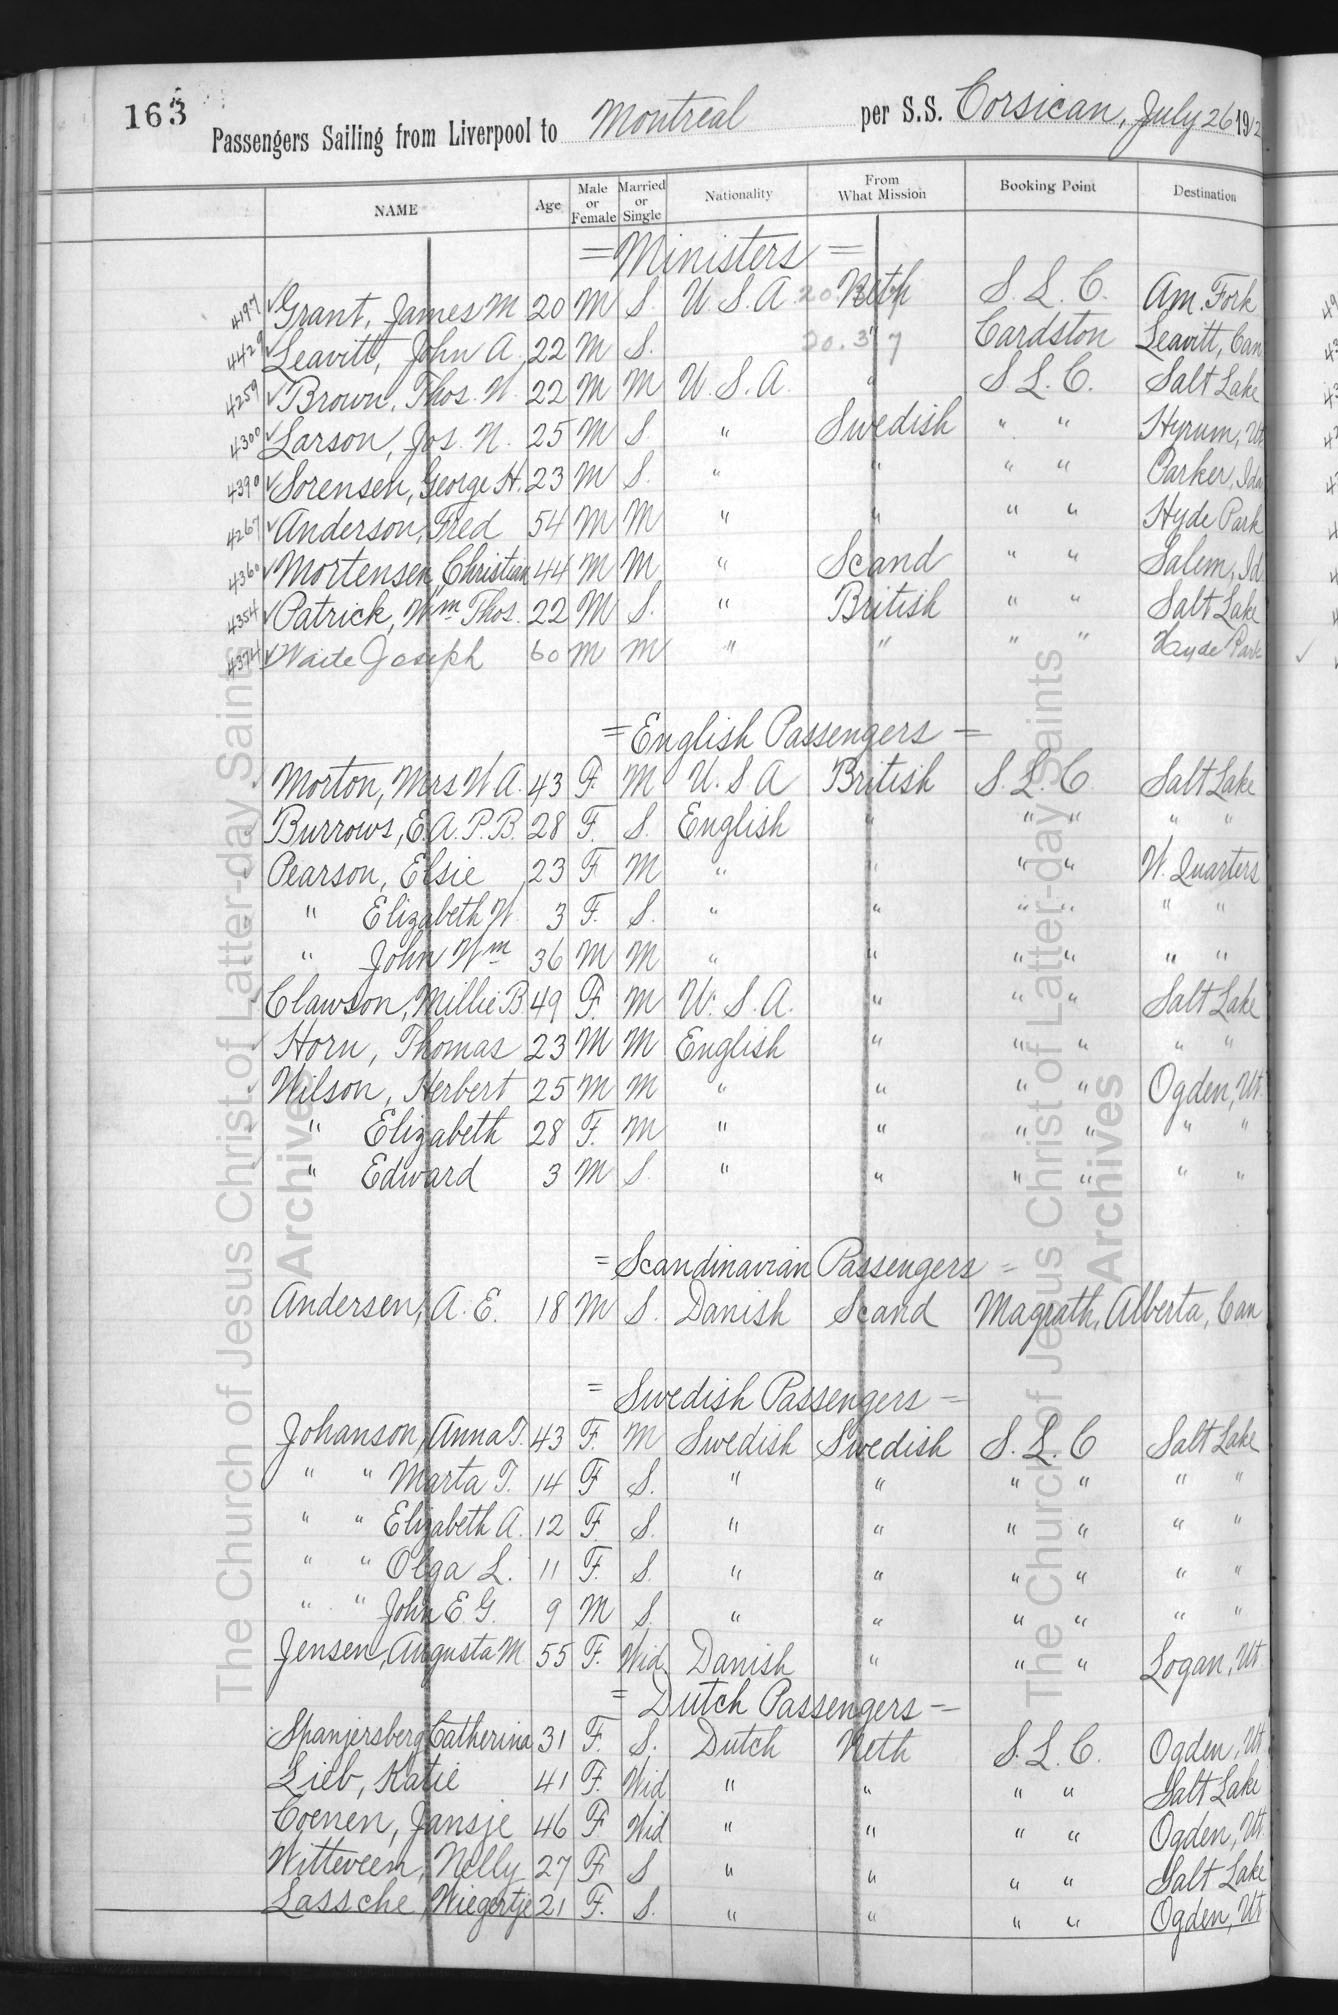 163
Passengers Sailing from Liverpool to Montreal per S.S. Corsican, July 26 1912
NAME Age Male or Female Married or Single Nationality From What Mission Booking Point Destination
= Ministers =
4197 ✓ Grant, James M 20 M S. U.S.A. Neth S.L.C. Am. Fork
4429 ✓ Leavitt, John A. 22 M S. 20.3.7 " Cardston Leavitt, Can
4259 ✓ Brown, Thos. W. 22 M M U.S.A. " S.L.C. Salt Lake
4300 ✓ Larson, Jos. N. 25 M S. " Swedish " " Hyrum, Ut
4390 ✓ Sorensen, George H. 23 M S. " " " " Parker, Ida
4267 ✓ Anderson, Fred 54 M M " " " " Hyde Park
4360 ✓ Mortensen, Christian 44 M M " Scand " " Salem, Id.
4354 ✓ Patrick, Wm Thos. 22 M S. " British " " Salt Lake
4374 ✓ Waite Joseph 60 M M " " " " Hyde Park
= English Passengers =
Morton, Mrs W A. 43 F. M U.S.A British S.L.C. Salt Lake
Burrows, E.A.P.B. 28 F. S. English " " " " "
Pearson, Elsie 23 F M " " " " W. Quarters
" Elizabeth W. 3 F. S. " " " " " "
" John Wm 36 M M " " " " " "
Clawson, Millie B 49 F. M U.S.A. " " " Salt Lake
Horn, Thomas 23 M M English " " " " "
Wilson, Herbert 25 M M " " " " Ogden, Ut.
" Elizabeth 28 F. M " " " " " "
" Edward 3 M S. " " " " " "
= Scandinavian Passengers =
Andersen, A. E. 18 M S. Danish Scand Magrath, Alberta, Can
= Swedish Passengers =
Johanson, Anna T. 43 F. M Swedish Swedish S.L.C Salt Lake
" " Marta T. 14 F S. " " " " " "
" " Elizabeth A. 12 F S. " " " " " "
" " Olga L. 11 F. S. " " " " " "
" " John E. G. 9 M S. " " " " " "
Jensen, Augusta M. 55 F. Wid. Danish " " " Logan, Ut
= Dutch Passengers =
Spanjersberg, Catherina 31 F. S. Dutch Neth S.L.C. Ogden, Ut
Lieb, Katie 41 F. Wid " " " " Salt Lake
Coenen, Jansje 46 F Wid " " " " Ogden, Ut.
Witteveen, Nelly 27 F S " " " " Salt Lake
Lassche, Wiegertje 21 F. S. " " " " Ogden, Ut
The Church of Jesus Christ of Latter-day Saints
Archives
The Church of Jesus Christ of Latter-day Saints
Archives